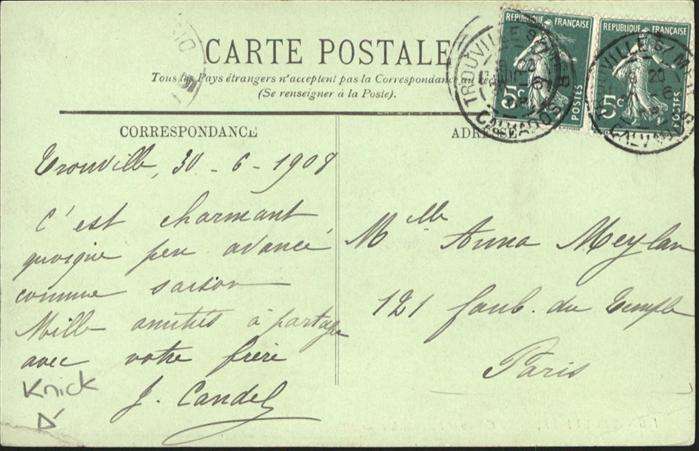 CARTE POSTALE
Tous les Pays étrangers n'acceptent pas la Correspondance au
(Se renseigner à la Poste).
RÉPUBLIQUE FRANÇAISE
5c
POSTES
RÉPUBLIQUE FRANÇAISE
5c
POSTES
TROUVILLE S/ MER
CALVADOS
CORRESPONDANCE
ADRE
Trouville, 30-6-1908
C'est charmant
quoique peu avancé
comme saison
Mille amitiés à partager
avec votre frère
J. Candel
Knick
Mlle Anna Meylan
121 faub. du Temple
Paris